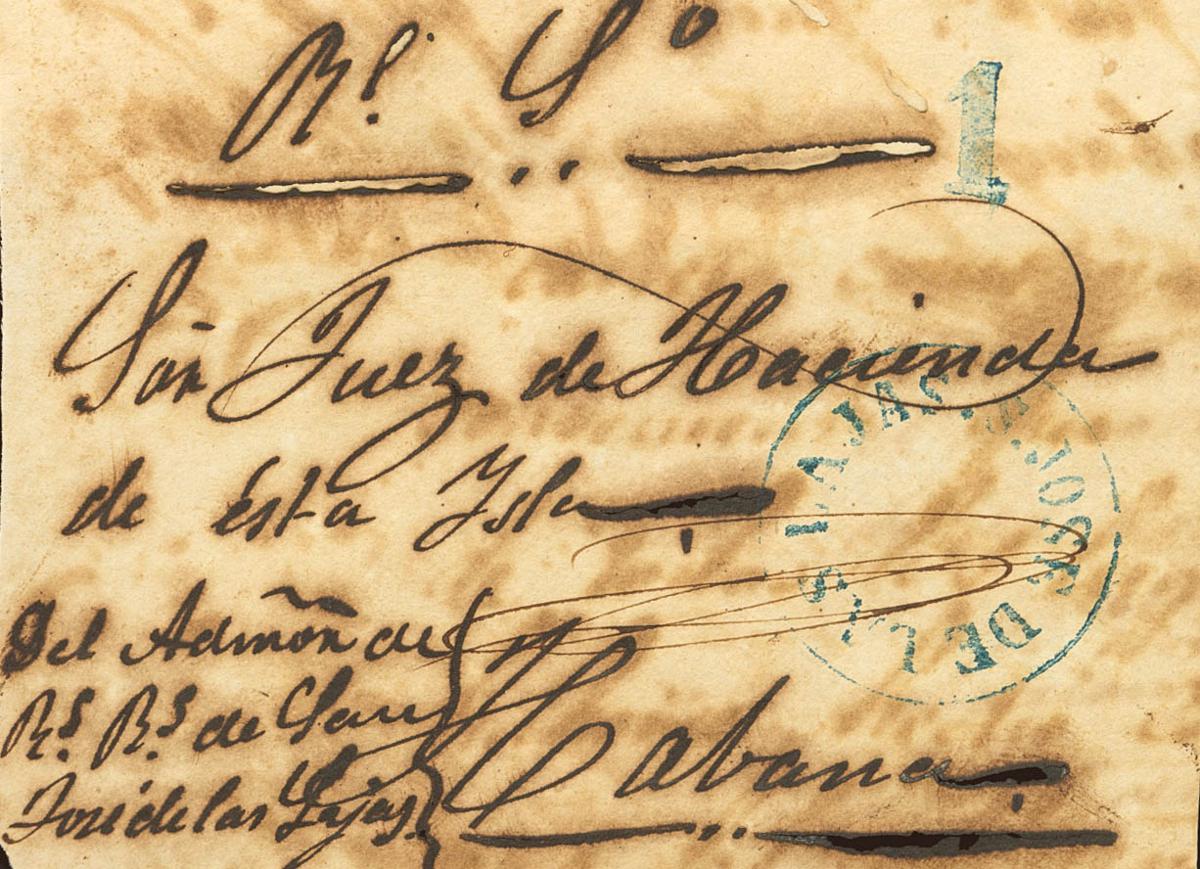 Rl. So
1
Sor Juez de Hacienda
de ésta Ysla
Del Admōn de
Rs. Rs. de San
José de las Lajas.
Habana
S JOSE DE LAS LAJAS.